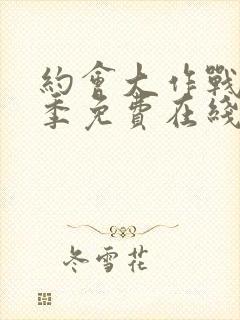 約會大作戰
季免費在綫
冬雪花